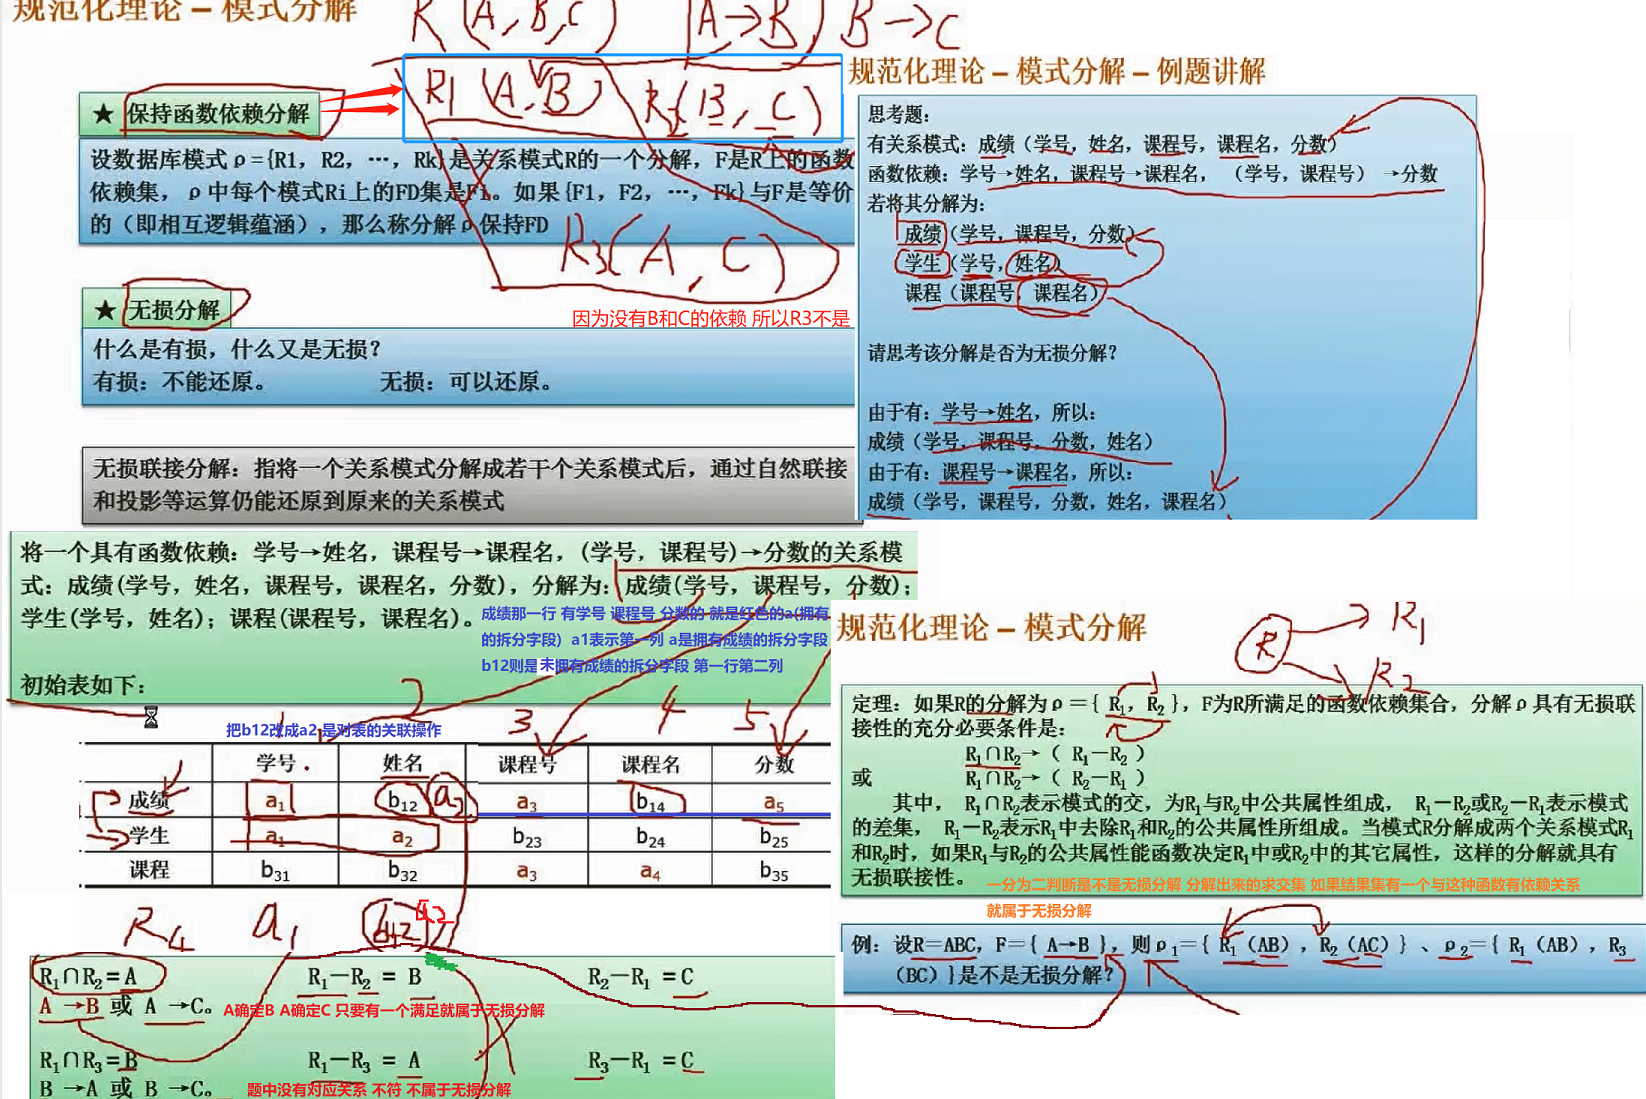 规范化理论 – 模式分解
R (A, B, C) A→B, B→C
★ 保持函数依赖分解
R1 (A, B) R2 (B, C)
设数据库模式ρ={R1, R2, …, Rk}是关系模式R的一个分解, F是R上的函数
依赖集, ρ中每个模式Ri上的FD集是Fi。如果{F1, F2, …, Fk}与F是等价
的(即相互逻辑蕴涵), 那么称分解ρ保持FD
R3(A, C)
因为没有B和C的依赖 所以R3不是
★ 无损分解
什么是有损, 什么又是无损?
有损: 不能还原。 无损: 可以还原。
无损联接分解: 指将一个关系模式分解成若干个关系模式后, 通过自然联接
和投影等运算仍能还原到原来的关系模式
规范化理论 – 模式分解 – 例题讲解
思考题:
有关系模式: 成绩(学号, 姓名, 课程号, 课程名, 分数)
函数依赖: 学号→姓名, 课程号→课程名, (学号, 课程号) →分数
若将其分解为:
成绩(学号, 课程号, 分数)
学生(学号, 姓名)
课程(课程号, 课程名)
请思考该分解是否为无损分解?
由于有: 学号→姓名, 所以:
成绩(学号, 课程号, 分数, 姓名)
由于有: 课程号→课程名, 所以:
成绩(学号, 课程号, 分数, 姓名, 课程名)
将一个具有函数依赖: 学号→姓名, 课程号→课程名, (学号, 课程号)→分数的关系模
式: 成绩(学号, 姓名, 课程号, 课程名, 分数), 分解为: 成绩(学号, 课程号, 分数);
学生(学号, 姓名); 课程(课程号, 课程名)。
成绩那一行 有学号 课程号 分数的 就是红色的a(拥有
的拆分字段) a1表示第一列 a是拥有成绩的拆分字段
b12则是未拥有成绩的拆分字段 第一行第二列
初始表如下:
把b12改成a2 是对表的关联操作
1 2 3 4 5
学号 姓名 课程号 课程名 分数
成绩 a1 b12 a2 a3 b14 a5
学生 a1 a2 b23 b24 b25
课程 b31 b32 a3 a4 b35
R4 a1 b42
R1∩R2=A R1—R2 = B R2—R1 = C
A →B 或 A →C。 A确定B A确定C 只要有一个满足就属于无损分解
R1∩R3=B R1—R3 = A R3—R1 = C
B →A 或 B →C。 题中没有对应关系 不符 不属于无损分解
规范化理论 – 模式分解
R R1
R2
定理: 如果R的分解为ρ={ R1, R2 }, F为R所满足的函数依赖集合, 分解ρ具有无损联
接性的充分必要条件是:
R1∩R2→ ( R1—R2 )
或 R1∩R2→ ( R2—R1 )
其中, R1∩R2表示模式的交, 为R1与R2中公共属性组成, R1—R2或R2—R1表示模式
的差集, R1—R2表示R1中去除R1和R2的公共属性所组成。当模式R分解成两个关系模式R1
和R2时, 如果R1与R2的公共属性能函数决定R1中或R2中的其它属性, 这样的分解就具有
无损联接性。
一分为二判断是不是无损分解 分解出来的求交集 如果结果集有一个与这种函数有依赖关系
就属于无损分解
例: 设R=ABC, F={ A→B }, 则ρ1={ R1(AB), R2(AC)} 、ρ2={ R1(AB), R3
(BC)}是不是无损分解?